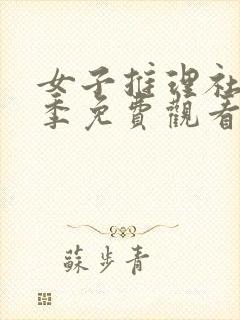 女子推理社
季免費觀看
蘇步青